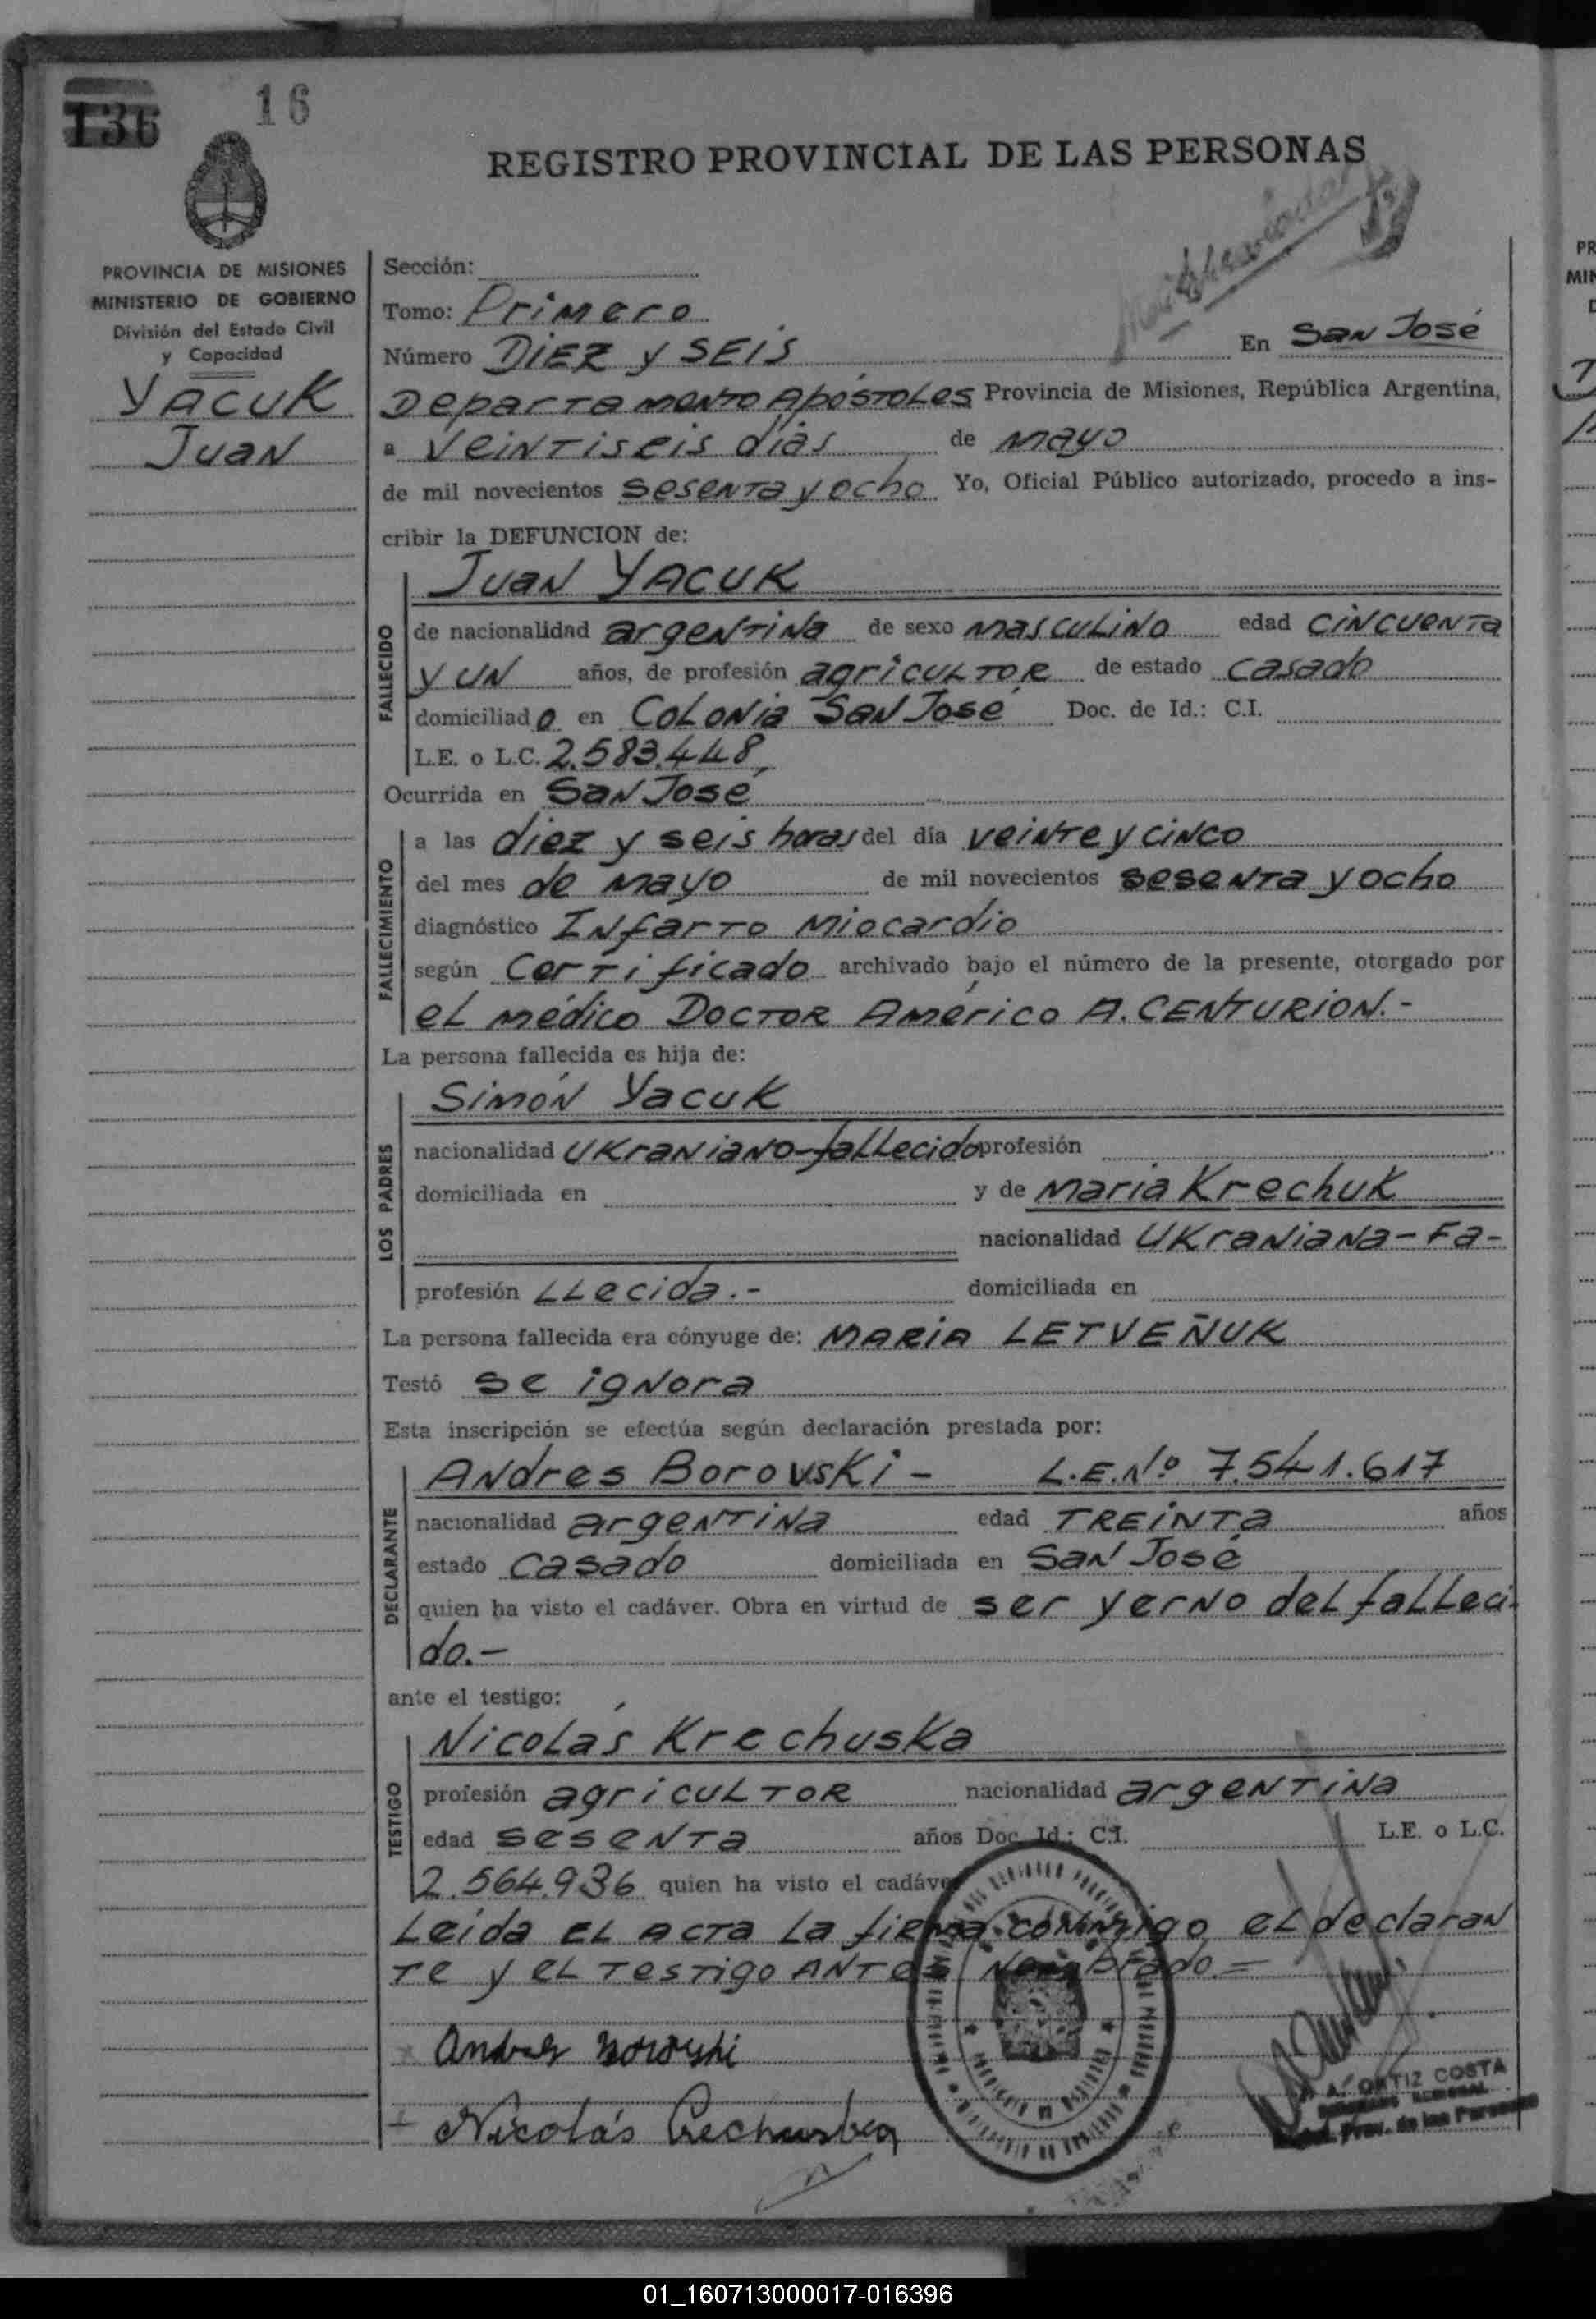 136 16
REGISTRO PROVINCIAL DE LAS PERSONAS
PROVINCIA DE MISIONES
MINISTERIO DE GOBIERNO
División del Estado Civil
y Capacidad
YACUK
Juan
Sección:
Tomo: Primero
Número Diez y seis En San José
Departamento Apóstoles Provincia de Misiones, República Argentina,
a veintiseis dias de mayo
de mil novecientos sesenta y ocho Yo, Oficial Público autorizado, procedo a ins-
cribir la DEFUNCION de:
Juan YACUK
FALLECIDO
de nacionalidad argentina de sexo masculino edad cincuenta
y un años, de profesión agricultor de estado casado
domiciliado en Colonia San José Doc. de Id.: C.I.
L.E. o L.C. 2.583.448
Ocurrida en San José
FALLECIMIENTO
a las diez y seis horas del día veinte y cinco
del mes de mayo de mil novecientos sesenta y ocho
diagnóstico Infarto miocardio
según Certificado archivado bajo el número de la presente, otorgado por
el médico Doctor Américo A. CENTURION.-
La persona fallecida es hija de:
LOS PADRES
Simón Yacuk
nacionalidad Ukraniano-fallecido profesión
domiciliada en y de Maria Krechuk
nacionalidad Ukraniana-Fa-
profesión LLecida.- domiciliada en
La persona fallecida era cónyuge de: MARIA LETVEÑUK
Testó se ignora
Esta inscripción se efectúa según declaración prestada por:
DECLARANTE
Andres Borovski - L.E.Nº 7.541.617
nacionalidad argentina edad TREINTA años
estado casado domiciliada en San José
quien ha visto el cadáver. Obra en virtud de ser yerno del falleci-
do.-
ante el testigo:
TESTIGO
Nicolás Krechuska
profesión agricultor nacionalidad argentina
edad sesenta años Doc. Id.: C.I. L.E. o L.C.
2.564.936 quien ha visto el cadáver
Leída el acta la firma conmigo el declaran
te y el testigo antes nombrado.=
Andres Borovski
Nicolás Crechuska
A. ORTIZ COSTA
Prov. de las Personas
01_160713000017-016396